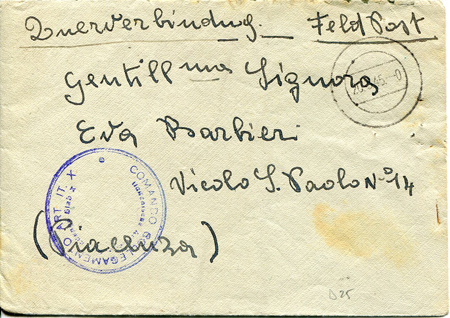 Querverbindung. Feld Post
Gentill ma Signora
Eva Barbieri
Vicolo S. Paolo N° 14
(Piacenza)
COMANDO COLLEGAMENTO ART. IT. X
D25